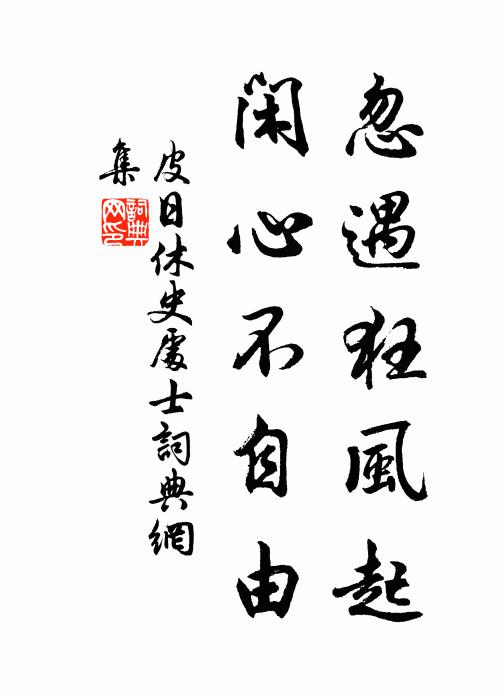 忽遇狂風起
閑心不自由
皮日休史處士詞典網
集
詞典網印